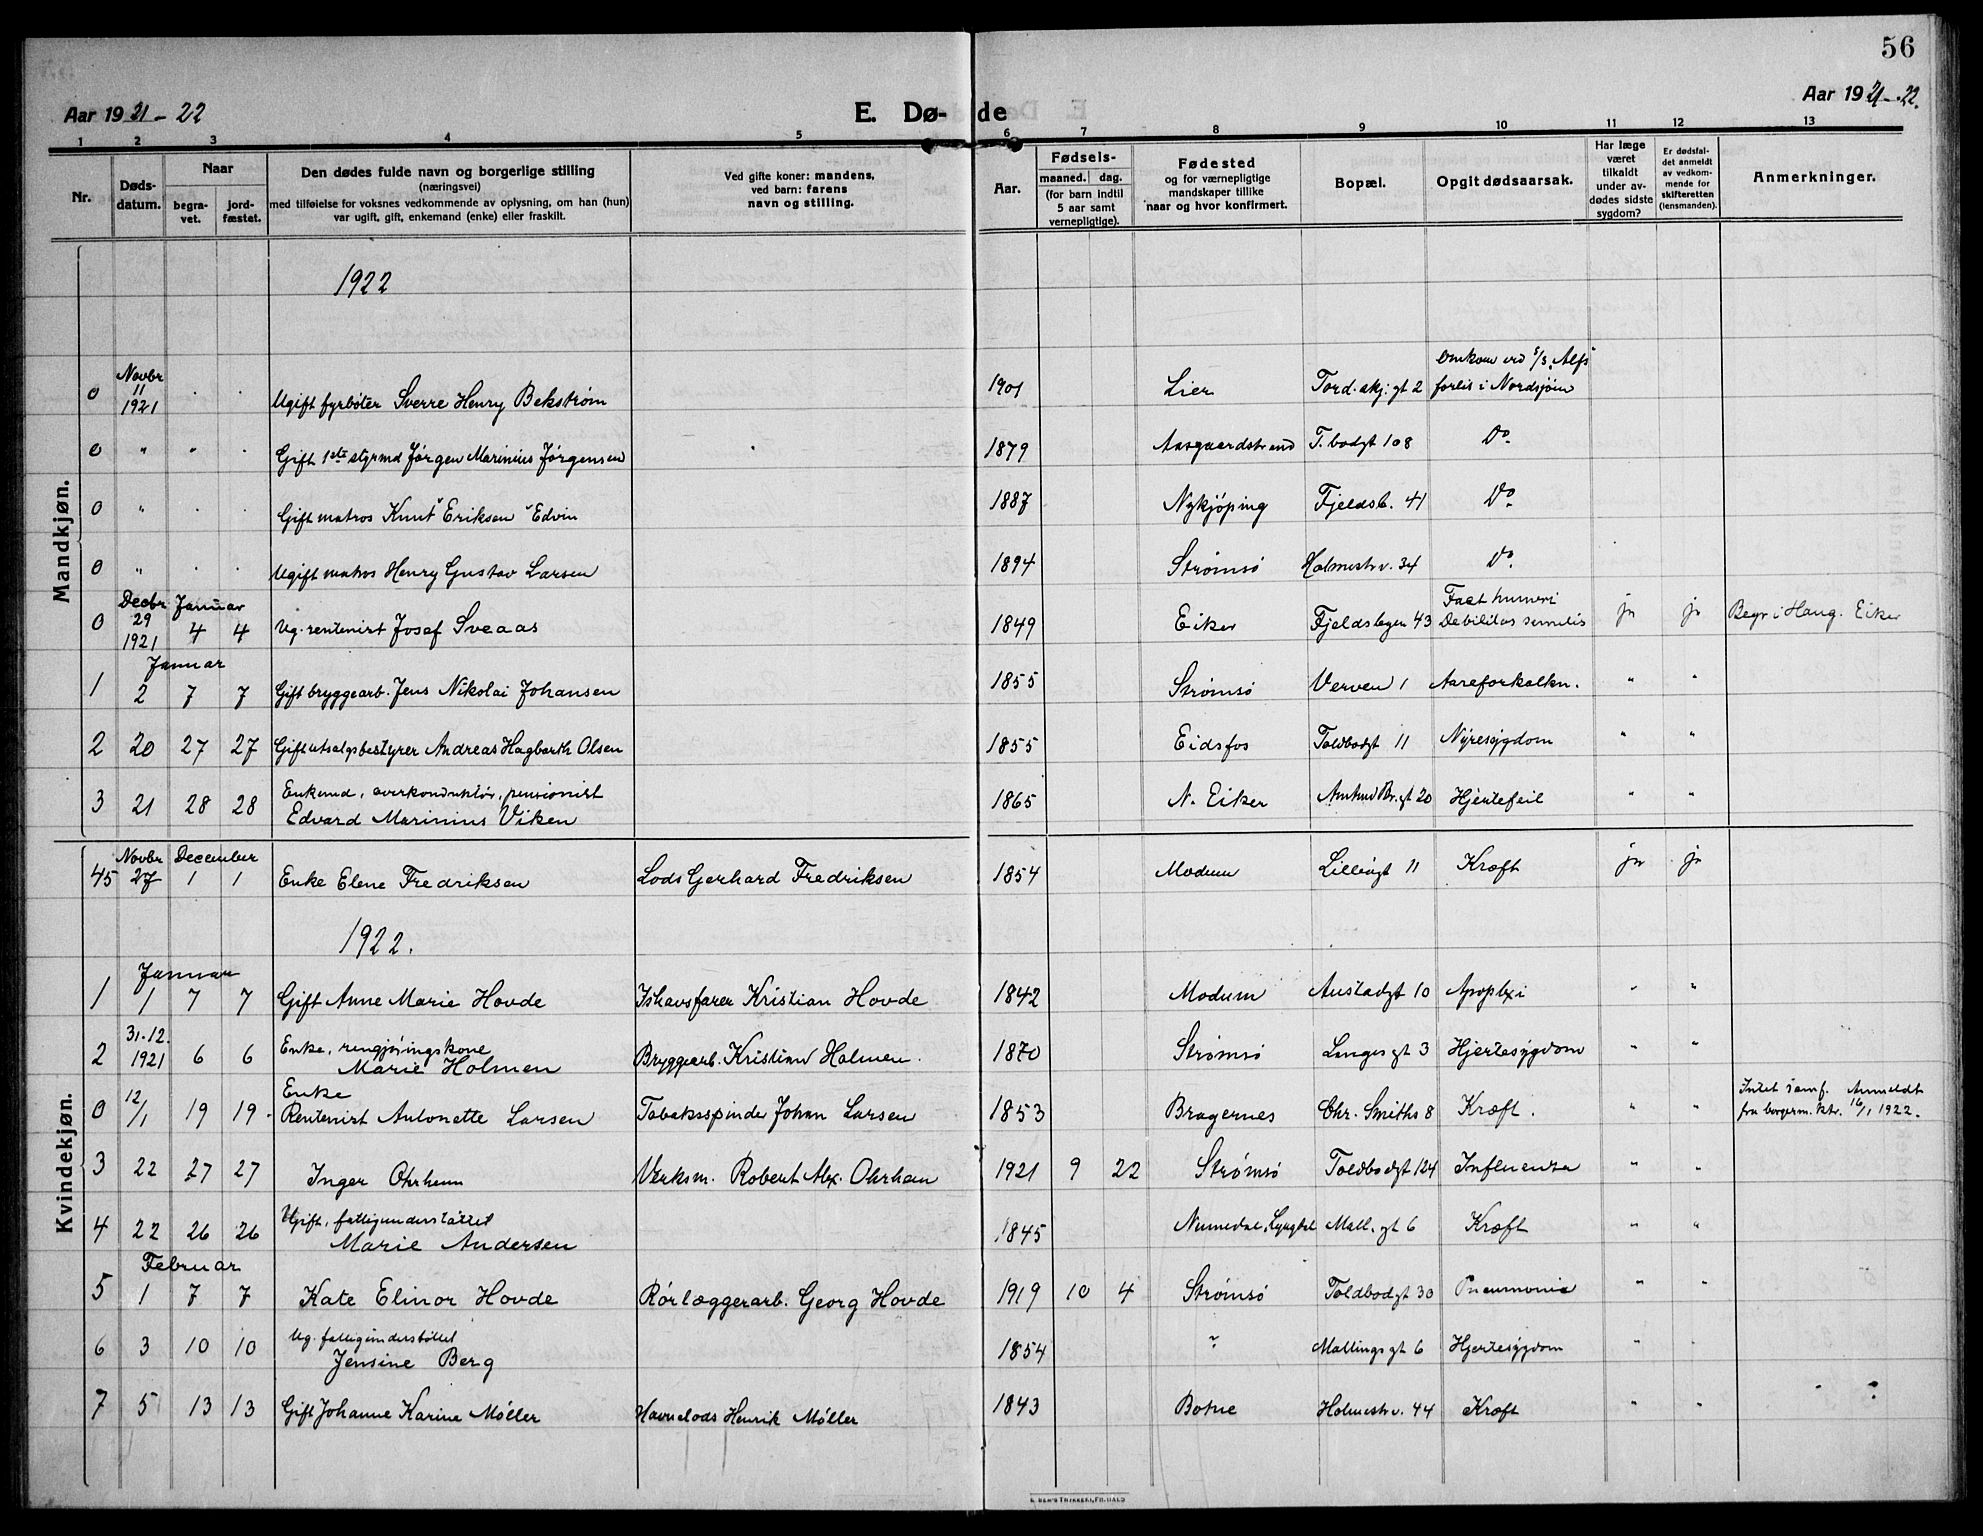 56
Aar 1921-22 E. Dø- de Aar 1921-22.
1 2 3 4 5 6 7 8 9 10 11 12 13
Nr. Døds-datum. Naar begra-vet. jord-fæstet. Den dødes fulde navn og borgerlige stilling (næringsvei) med tilføielse for voksnes vedkommende av oplysning, om han (hun) var ugift, gift, enkemand (enke) eller fraskilt. Ved gifte koner: mandens, ved barn: farens navn og stilling. Aar. Fødsels- maaned. dag. (for barn indtil 5 aar samt vernepligtige). Fødested og for værnepligtige mandskaper tillike naar og hvor konfirmert. Bopæl. Opgit dødsaarsak. Har læge været tilkaldt under av-dødes sidste sygdom? Er dødsfal-det anmeldt av vedkom-mende for skifteretten (lensmanden). Anmerkninger.
Mandkjøn.
1922
0 Novbr 11 1921 . . Ugift fyrbøter Sverre Henry Bekstrøm 1901 Lier Tord.skj.gt 2 Omkom ved S/S "Alfs" forlis i Nordsjøen
0 " " . Gift 1ste styrmd Jørgen Marinius Jørgensen 1879 Aasgaardstrand T.bodgt 108 Do.
0 " . . Gift matros Knut Eriksen Edvin 1887 Nykjøping Fjeldsb. 41 Do.
0 " . . Ugift matros Henry Gustav Larsen 1894 Strømsø Holmestrv. 34 Do.
0 Decbr 29 1921 Januar 4 4 Ug. rentenist Josef Sveaas 1849 Eiker Fjeldsbyen 43 Fract humeri Debilitas senilis ja ja Begr i Haug. Eiker
1 Januar 2 7 7 Gift bryggearb. Jens Nikolai Johansen 1855 Strømsø Verven 1 Aareforkalkn. " "
2 20 27 27 Gift utsalgsbestyrer Andreas Hagbarth Olsen 1855 Eidsfos Toldbodgt 11 Nyresygdom " "
3 21 28 28 Enkemd, overkonduktør, pensionist Edvard Marinius Viken 1865 N. Eiker Amtmd Br.gt 20 Hjertefeil " "
Kvindekjøn.
45 Novbr 27 December 1 1 Enke Elene Fredriksen Lods Gerhard Fredriksen 1854 Modum Lilleøgt 11 Kræft ja ja
1922.
1 Januar 1 7 7 Gift Anne Marie Hovde Ishavsfarer Kristian Hovde 1842 Modum Austadgt 10 Apoplexi " "
2 31-12. 1921 6 6 Enke, rengjøringskone Marie Holmen Bryggearb. Kristian Holmen. 1870 Strømsø Langes gt 3 Hjertesygdom " "
0 12/1 19 19 Enke Rentenist Antonette Larsen Tobaksspinder Johan Larsen 1853 Bragernes Chr. Smiths 8 Kræft. " " Intet samf. Anmeldt fra borgerm. ktr. 16/1 1922.
3 22 27 27 Inger Ohrheim Verksm. Robert Alex. Ohrhan 1921 9 22 Strømsø Toldbodgt 124 Influenza " "
4 22 26 26 Ugift, fattigunderstøttet Marie Andersen 1845 Numedal, Lyngdal Mall. gt 6 Kræft " "
5 Februar 1 7 7 Kate Elinor Hovde Rørlæggerarb. Georg Hovde 1919 10 4 Strømsø Toldbodgt 30 Pneumonia " "
6 3 10 10 Ug. fattigunderstøttet Jensine Berg 1854 ? Mallings gt 6 Hjertesygdom " "
7 5 13 13 Gift Johanne Karine Møller Havnelods Henrik Møller 1843 Botne Holmestrv. 44 Kræft " "